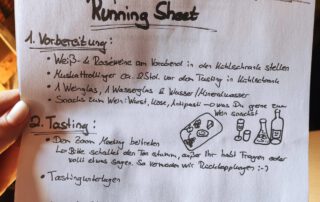 Running Sheet
1. Vorbereitung:
• Weiß- & Roséweine am Vorabend in den Kühlschrank stellen
• Muskattrollinger ca. 2 Std. vor dem Tasting in Kühlschrank
• 1 Weinglas, 1 Wasserglas & Wasser/Mineralwasser
• Snacks zum Wein: Wurst, Käse, Antipasti → was Du gerne zum
Wein snackst!
2. Tasting:
• Den Zoom Meeting beitreten
↳ Bitte schaltet den Ton stumm, außer Ihr habt Fragen oder
wollt etwas sagen. So vermeiden wir Rückkopplungen :-)
• Tastingunterlagen